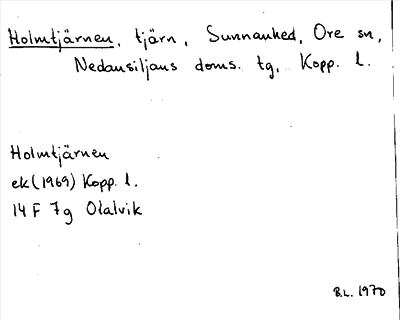 Holmtjärnen, tjärn, Sunnanhed, Ore sn,
Nedansiljans doms. tg, Kopp. l.
Holmtjärnen
ek (1969) Kopp. l.
14 F 7g Olalvik
B.L. 1970